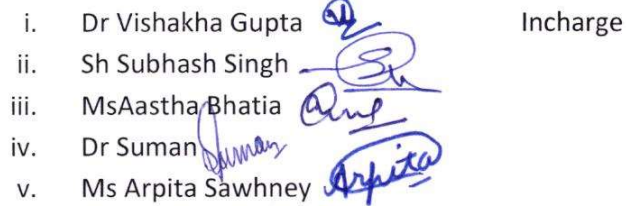 i. Dr Vishakha Gupta Incharge
ii. Sh Subhash Singh
iii. MsAastha Bhatia
iv. Dr Suman Suman
v. Ms Arpita Sawhney Arpita